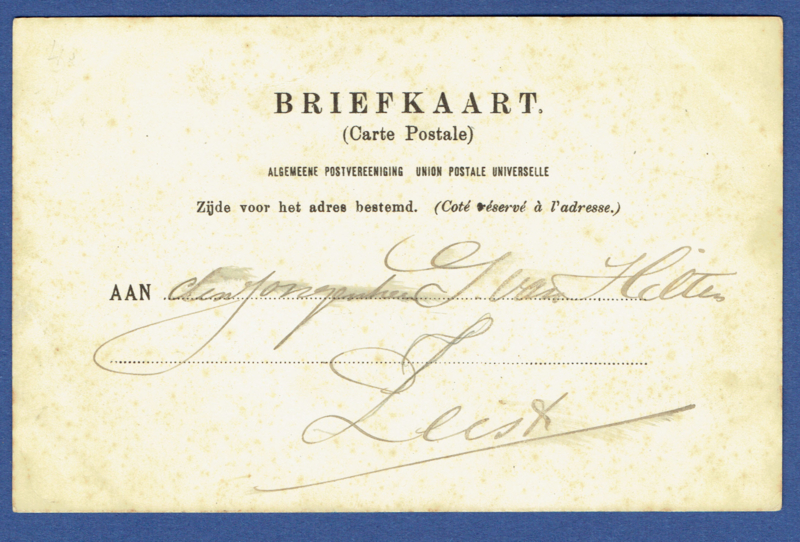 BRIEFKAART.
(Carte Postale)
ALGEMEENE POSTVEREENIGING UNION POSTALE UNIVERSELLE
Zijde voor het adres bestemd. (Coté réservé à l'adresse.)
AAN den Jongenheer G. van Hilten
Zeist